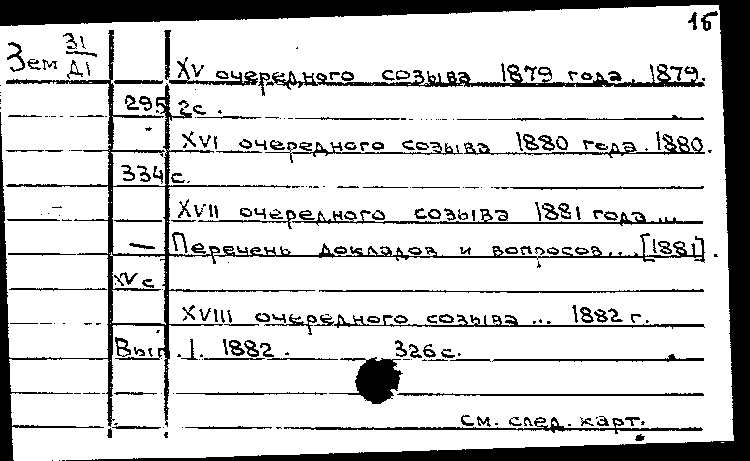 15
Зем 31/Д1
XV очередного созыва 1879 года. 1879.
295, 2с.
XVI очередного созыва 1880 года. 1880.
334 с.
XVII очередного созыва 1881 года...
— Перечень докладов и вопросов... [1881].
XV с
XVIII очередного созыва ... 1882 г.
Вып. I. 1882. 326 с.
см. след. карт.